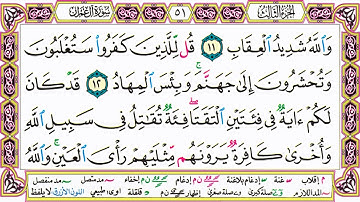 الجزء الثالث ٥١ سورة آل عمران
وَٱللَّهُ شَدِيدُ ٱلْعِقَابِ ١١ قُل لِّلَّذِينَ كَفَرُوا۟ سَتُغْلَبُونَ
وَتُحْشَرُونَ إِلَىٰ جَهَنَّمَ ۚ وَبِئْسَ ٱلْمِهَادُ ١٢ قَدْ كَانَ
لَكُمْ ءَايَةٌ فِى فِئَتَيْنِ ٱلْتَقَتَا ۖ فِئَةٌ تُقَٰتِلُ فِى سَبِيلِ ٱللَّهِ
وَأُخْرَىٰ كَافِرَةٌ يَرَوْنَهُم مِّثْلَيْهِمْ رَأْىَ ٱلْعَيْنِ ۚ وَٱللَّهُ